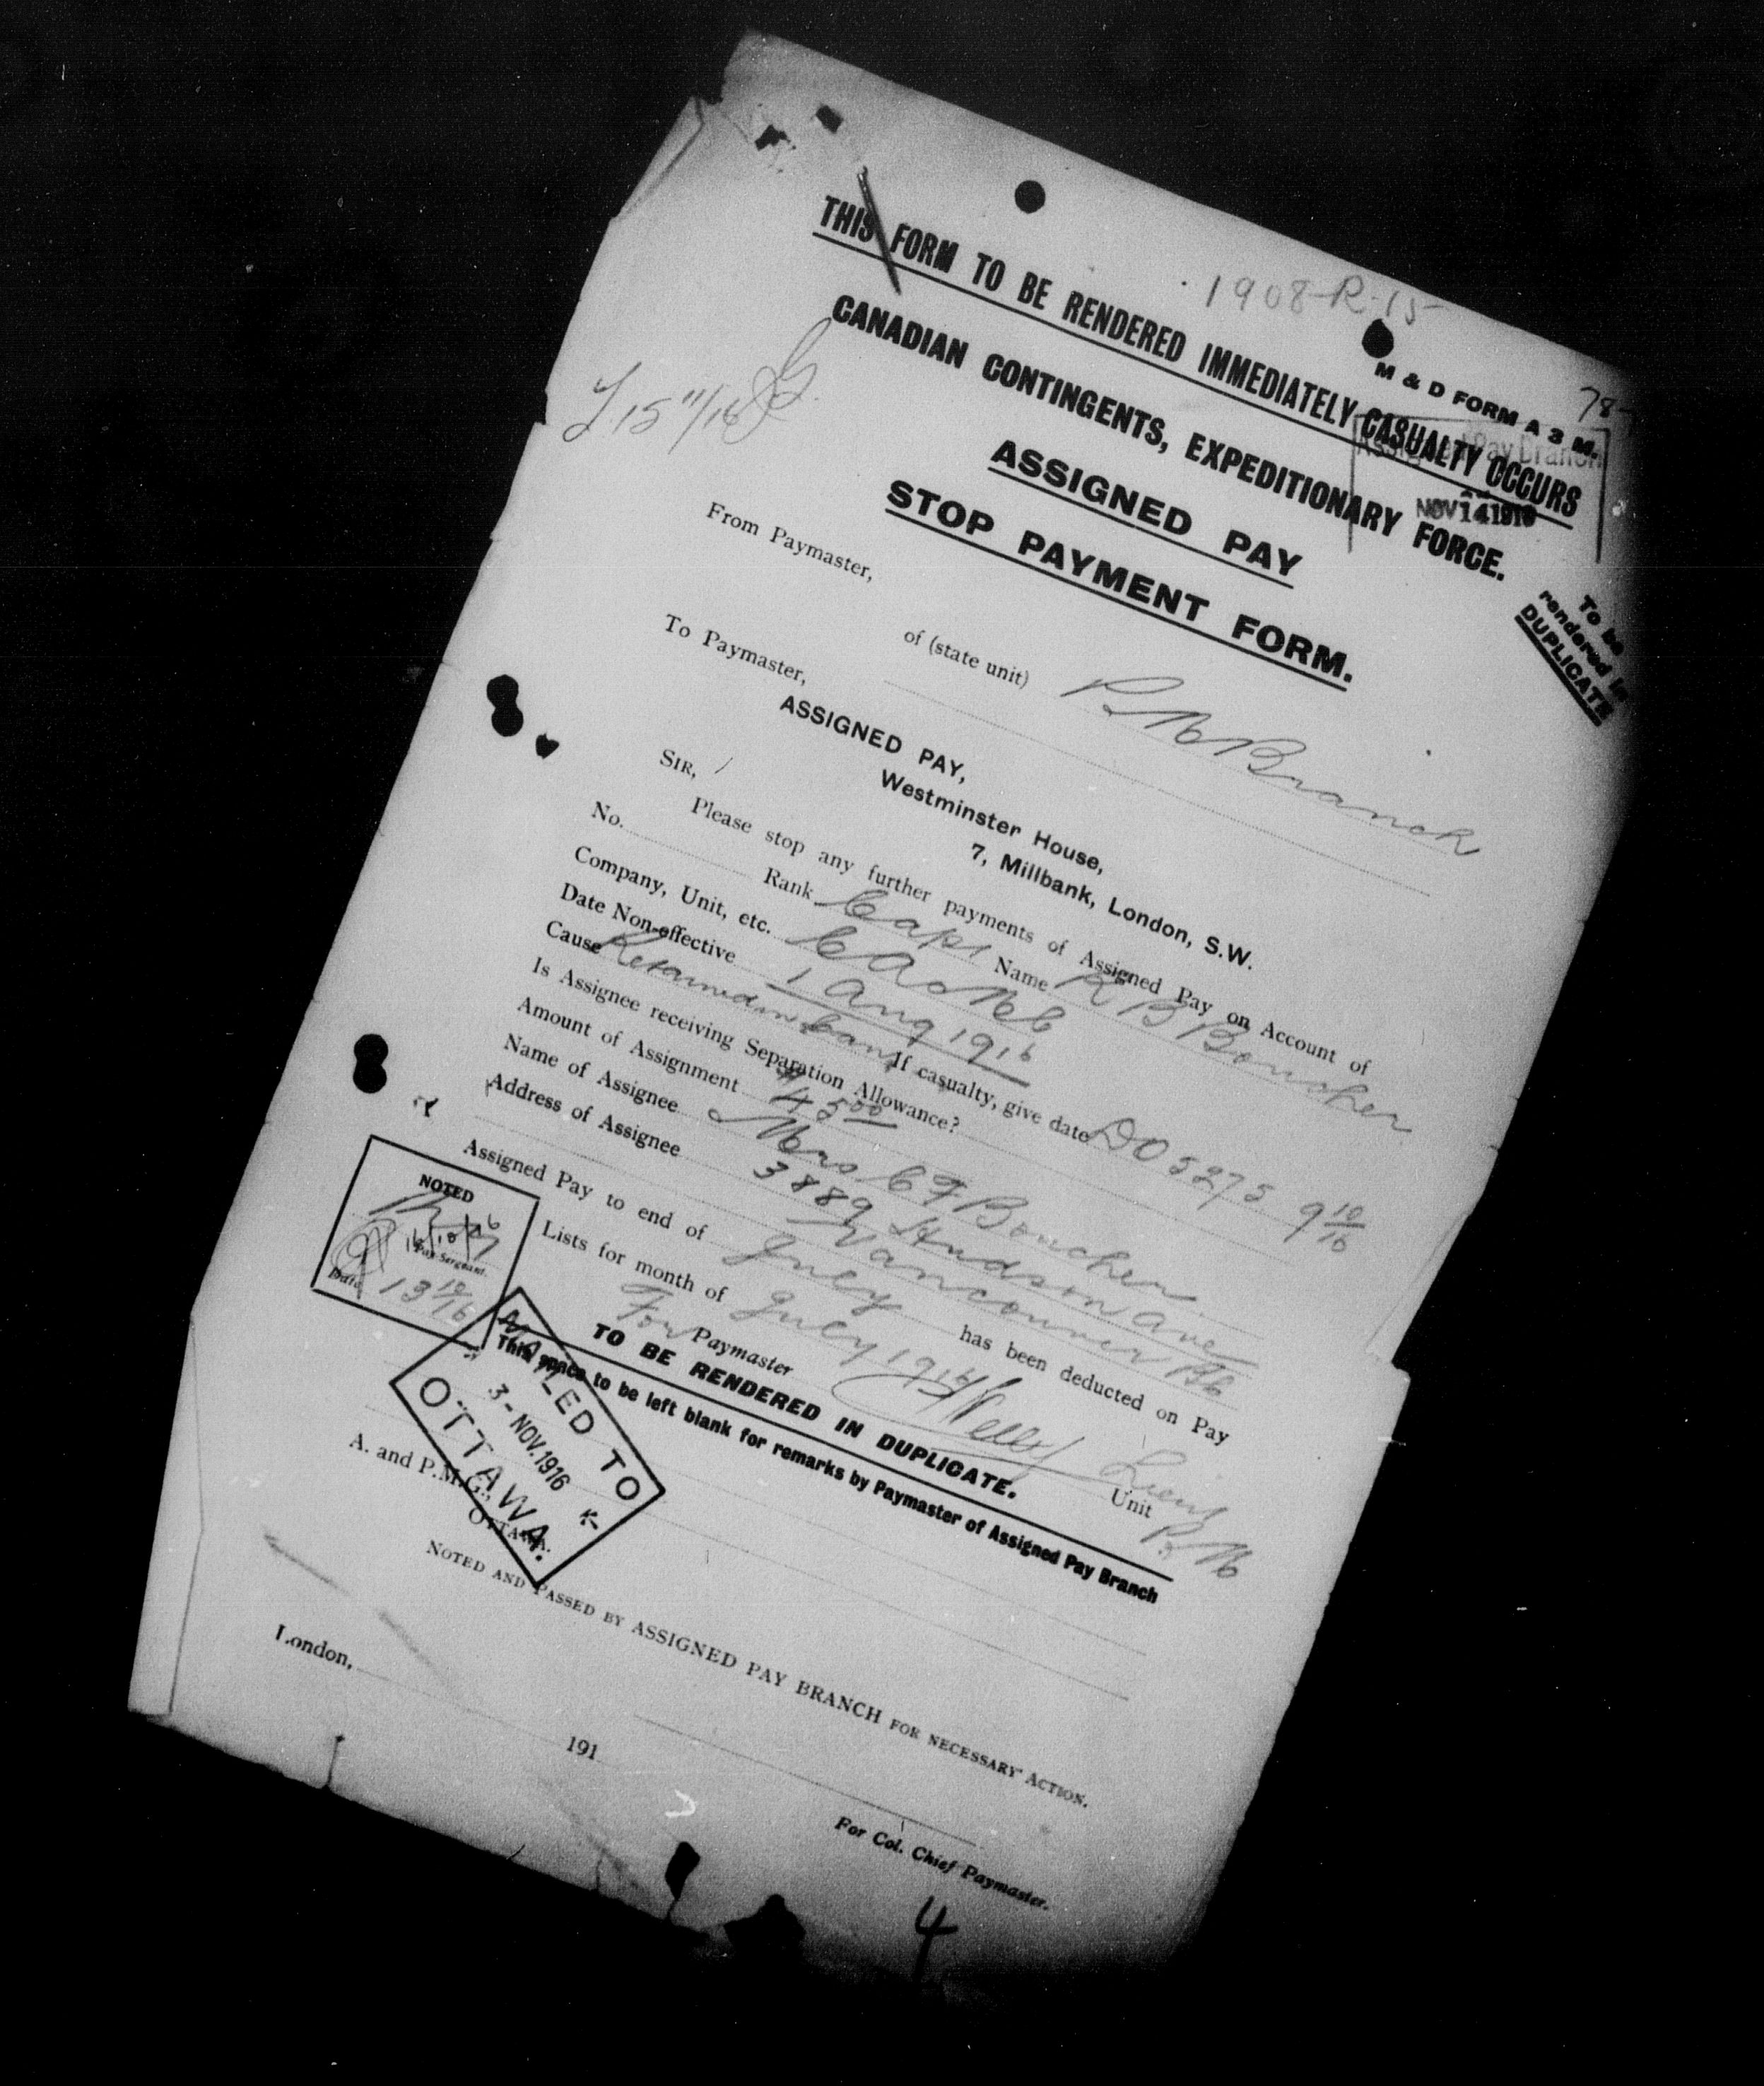 1908-R-15
M & D FORM A 3 M.
78-
THIS FORM TO BE RENDERED IMMEDIATELY CASUALTY OCCURS
CANADIAN CONTINGENTS, EXPEDITIONARY FORCE.
Assigned Pay Branch
NOV 14 1916
ASSIGNED PAY
STOP PAYMENT FORM.
To be
rendered in
DUPLICATE
From Paymaster,
of (state unit) P M Branch
To Paymaster,
ASSIGNED PAY,
Westminster House,
7, Millbank, London, S.W.
SIR,
Please stop any further payments of Assigned Pay on Account of
No. Rank Capt Name R B Boucher
Company, Unit, etc. C A M C
Date Non-effective 1 Aug 1916
Cause Retained in Can If casualty, give date DO 5275 9 10/16
Is Assignee receiving Separation Allowance?
Amount of Assignment $45 00
Name of Assignee Mrs C F Boucher
Address of Assignee 3889 Hudson Ave
Vancouver BC
Assigned Pay to end of July has been deducted on Pay
Lists for month of July 1916
For Paymaster Lieut Unit P M
NOTED
Pay Sergeant.
Date 13 10/16
TO BE RENDERED IN DUPLICATE.
This space to be left blank for remarks by Paymaster of Assigned Pay Branch
MAILED TO
3 - NOV. 1916
OTTAWA.
A. and P.M.G.,
OTTAWA.
NOTED AND PASSED BY ASSIGNED PAY BRANCH FOR NECESSARY ACTION.
London,
191
For Col. Chief Paymaster.
4